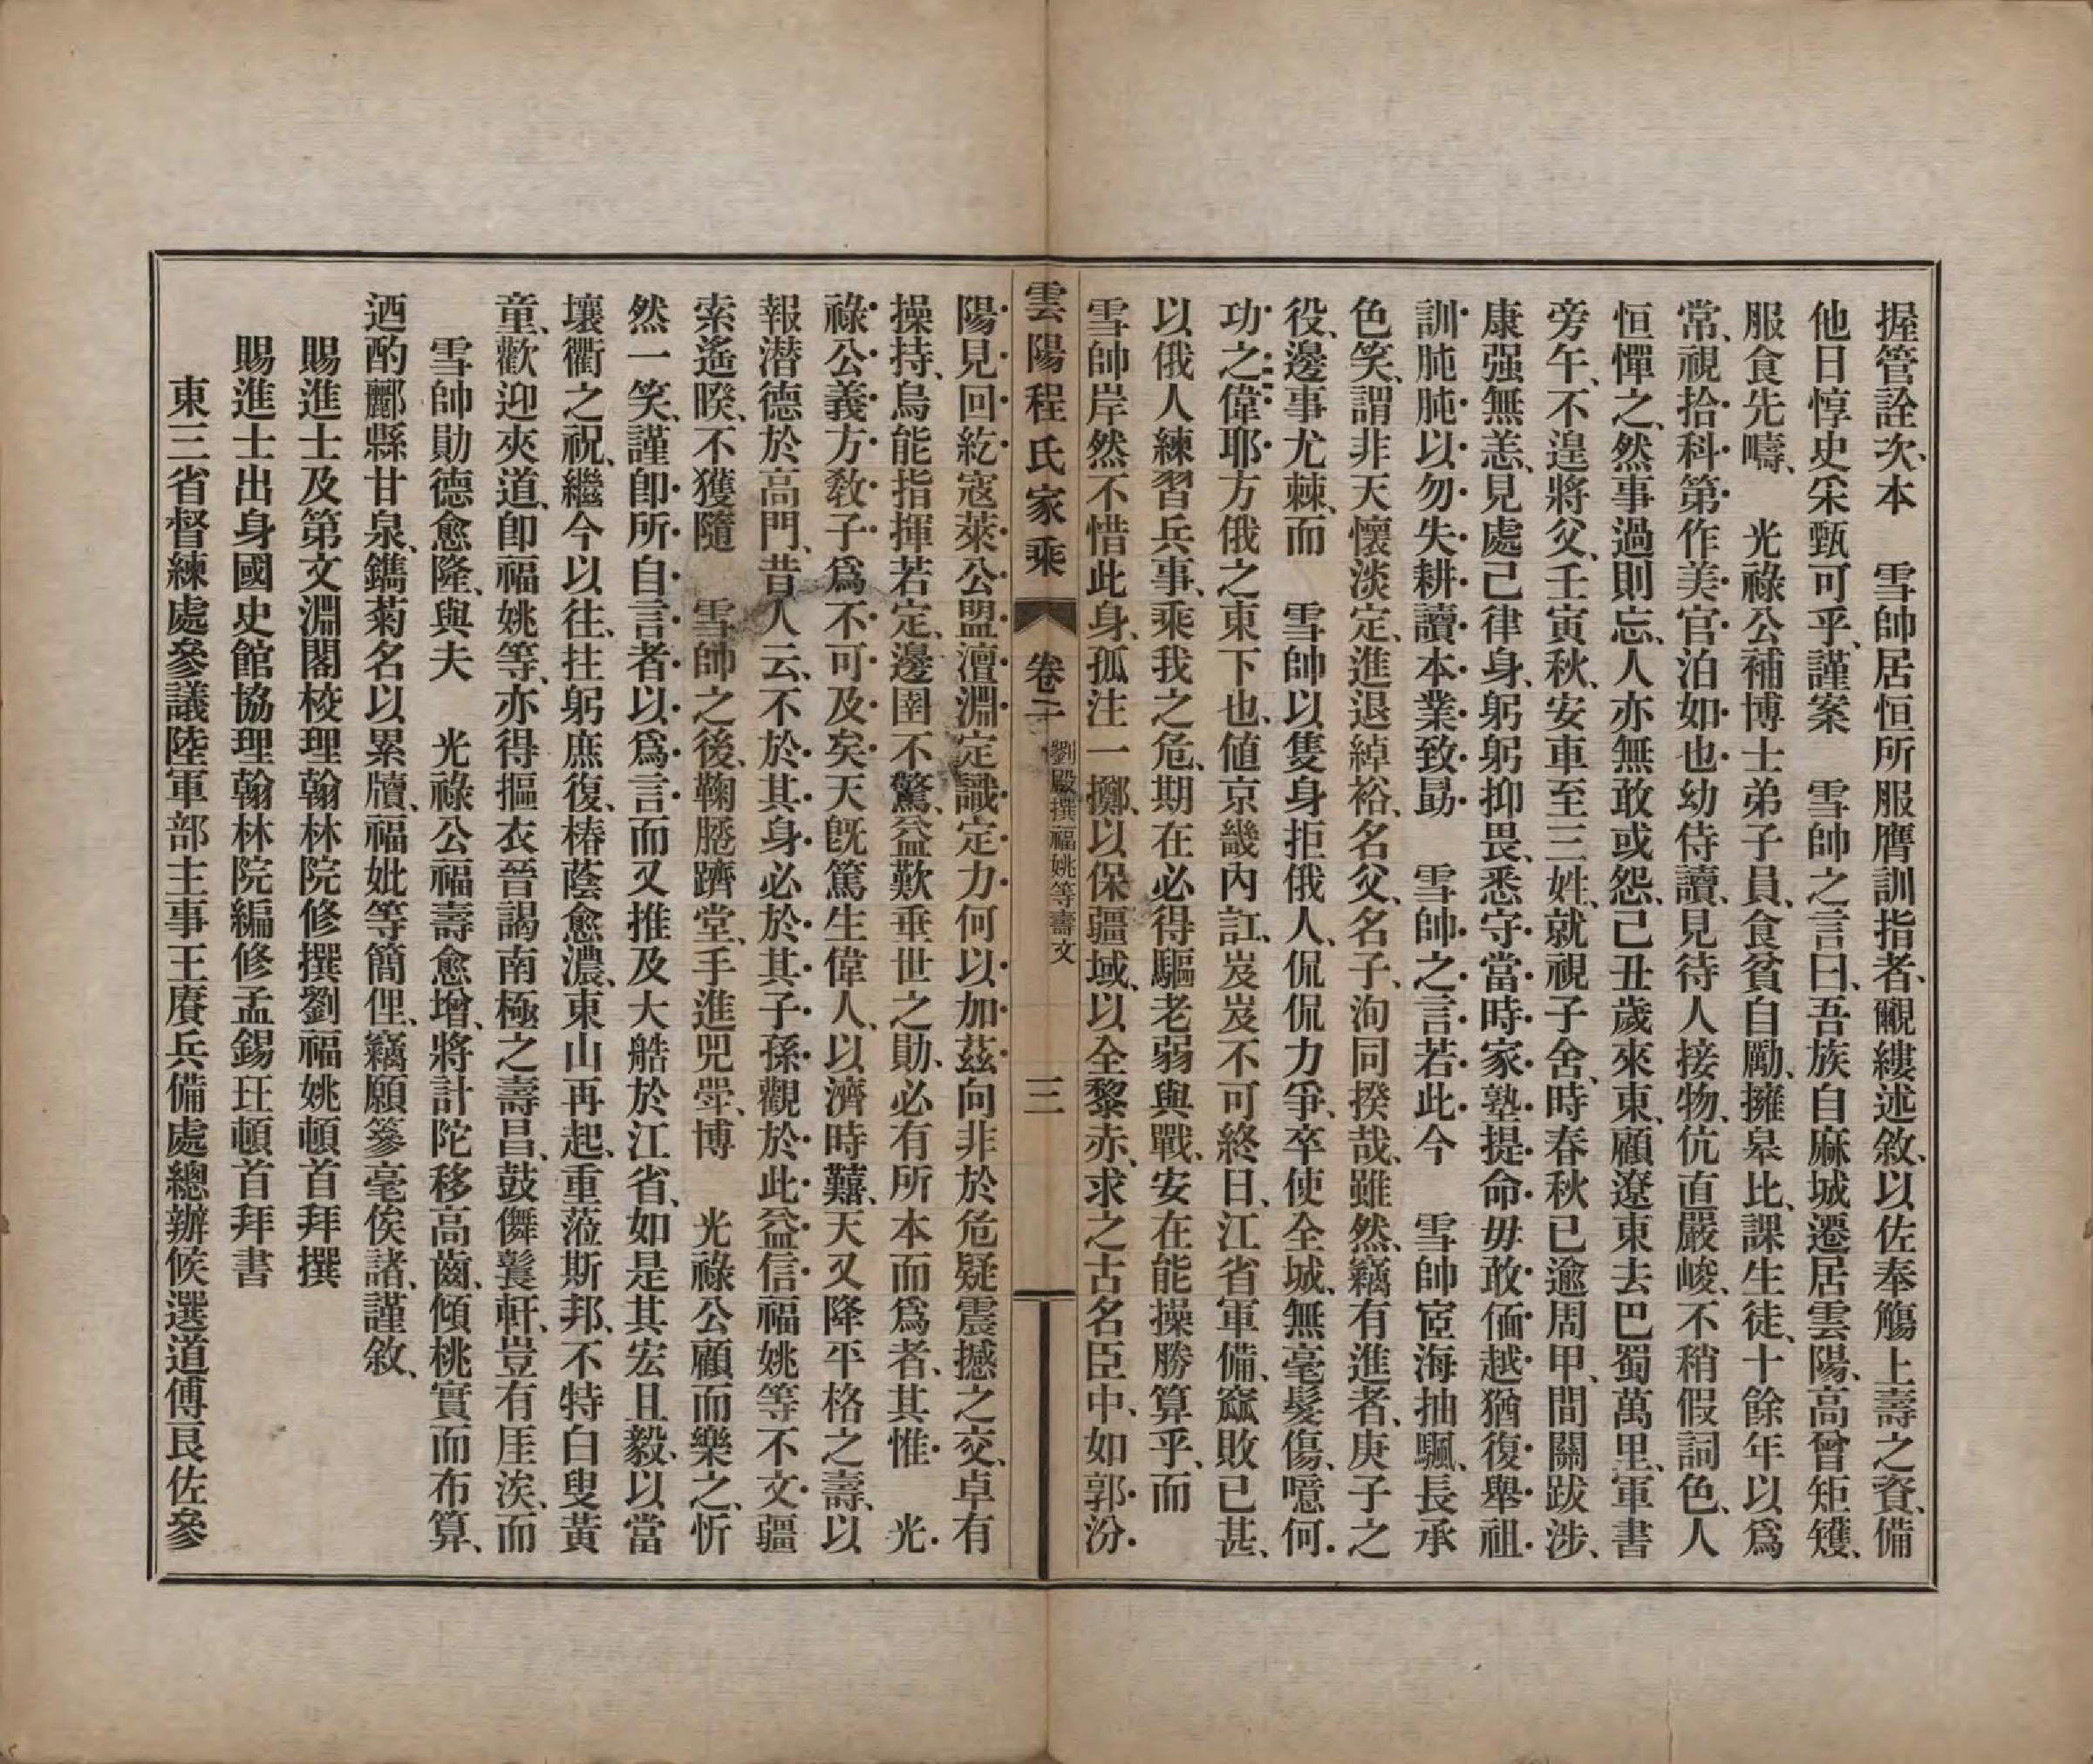 握管詮次、本　雪帥居恒所服膺訓指者、覼縷述敘、以佐奉觴上壽之資、備
他日惇史采甄可乎、謹案　雪帥之言曰、吾族自麻城遷居雲陽、高曾矩矱、
服食先疇、　光祿公補博士弟子員、食貧自勵、擁皋比、課生徒、十餘年以爲
常、視拾科第作美官泊如也幼侍讀、見待人接物、伉直嚴峻、不稍假詞色、人
恒憚之、然事過則忘、人亦無敢或怨、己丑歲來東、顧遼東去巴蜀萬里、軍書
旁午、不遑將父、壬寅秋、安車至三姓、就視子舍、時春秋已逾周甲、間關跋涉、
康强無恙、見處己律身、躬躬抑畏、悉守當時家塾提命毋敢偭越猶復舉祖
訓肫肫以勿失耕讀本業致勗　雪帥之言若此今　雪帥宦海抽颿、長承
色笑、謂非天懷淡定、進退綽裕、名父名子、洵同揆哉、雖然、竊有進者、庚子之
役、邊事尤棘、而　雪帥以隻身拒俄人、侃侃力爭、卒使全城、無毫髮傷、噫何
功之偉耶方俄之東下也、値京畿內訌、岌岌不可終日、江省軍備、窳敗已甚、
以俄人練習兵事、乘我之危、期在必得驅老弱與戰、安在能操勝算乎、而
雪帥岸然不惜此身、孤注一擲、以保疆域、以全黎赤、求之古名臣中、如郭汾
雲陽程氏家乘　卷二　劉殿撰福姚等壽文　三
陽見回紇寇萊公盟澶淵定識定力何以加茲向非於危疑震撼之交、卓有
操持、烏能指揮若定、邊圉不驚、益歎垂世之勛、必有所本而爲者、其惟　光
祿公義方敎子爲不可及矣天旣篤生偉人、以濟時囏、天又降平格之壽、以
報潛德於高門、昔人云、不於其身必於其子孫觀於此益信福姚等不文疆
索遙暌、不獲隨　雪帥之後、鞠𦜕躋堂、手進兕斝、博　光祿公顧而樂之、忻
然一笑、謹卽所自言者以爲言而又推及大䑺於江省、如是其宏且毅、以當
壤衢之祝、繼今以往、拄躬庶復、椿蔭愈濃、東山再起、重蒞斯邦、不特白叟黃
童、歡迎夾道、卽福姚等、亦得摳衣晉謁南極之壽昌、鼓儛鬟軒、豈有厓涘、而
雪帥勛德愈隆、與夫　光祿公福壽愈增、將計陀移高齒、傾桃實而布算、
迺酌酈縣甘泉、鐫菊名以累牘、福妣等簡俚、竊願篸毫俟諸、謹敘、
賜進士及第文淵閣校理翰林院修撰劉福姚頓首拜撰
賜進士出身國史館協理翰林院編修孟錫玨頓首拜書
東三省督練處參議陸軍部主事王賡兵備處總辦候選道傅艮佐參